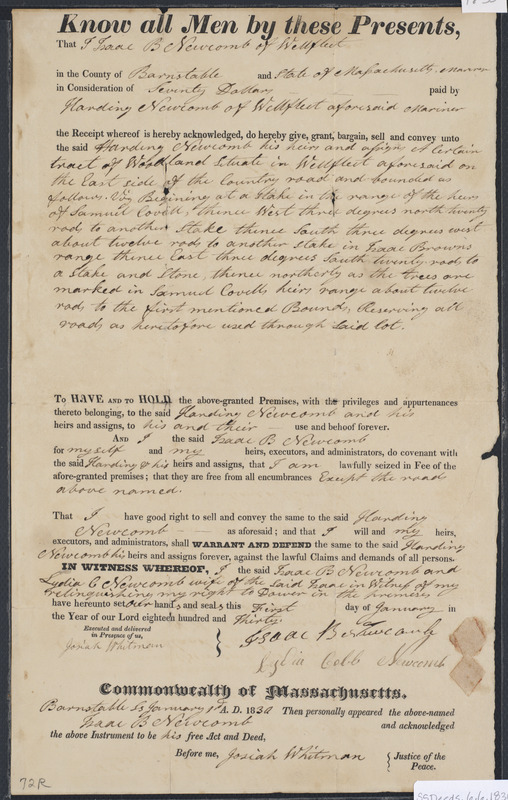 Know all Men by these Presents,
That I Isaac B Newcomb of Wellfleet
in the County of Barnstable and State of Massachusetts Mariner
in Consideration of Seventy Dollars paid by
Harding Newcomb of Wellfleet aforesaid Mariner
the Receipt whereof is hereby acknowledged, do hereby give, grant, bargain, sell and convey unto
the said Harding Newcomb his heirs and assigns A Certain
tract of Woodland Situate in Wellfleet aforesaid on
the East side of the Country road and bounded as
follows. Viz Begining at a Stake in the range of the heirs
of Samuel Covell, thence West three degrees north twenty
rods to another Stake thence South three degrees west
about twelve rods to another stake in Isaac Browns
range thence East three degrees South twenty rods to
a stake and Stone, thence northerly as the trees are
marked in Samuel Covells heirs range about twelve
rods to the first mentioned Bounds, Reserving all
roads as heretofore used through Said lot.
To HAVE AND TO HOLD the above-granted Premises, with the privileges and appurtenances
thereto belonging, to the said Harding Newcomb and his
heirs and assigns, to his and their use and behoof forever.
And I the said Isaac B Newcomb
for myself and my heirs, executors, and administrators, do covenant with
the said Harding & his heirs and assigns, that I am lawfully seized in Fee of the
afore-granted premises; that they are free from all encumbrances Except the road
above named.
That I have good right to sell and convey the same to the said Harding
Newcomb as aforesaid; and that I will and my heirs,
executors, and administrators, shall WARRANT AND DEFEND the same to the said Harding
Newcomb his heirs and assigns forever, against the lawful Claims and demands of all persons.
IN WITNESS WHEREOF, I the said Isaac B Newcomb and
Lydia C Newcomb wife of the Said Isaac in Witness of my
relinquishing my right to Dower in the premises
have hereunto set our hands and seals this First day of January in
the Year of our Lord eighteen hundred and Thirty
Executed and delivered
in Presence of us,
Josiah Whitman
Isaac B Newcomb
Lydia Cobb Newcomb
Commonwealth of Massachusetts.
Barnstable Ss January 1st A. D. 1830 Then personally appeared the above-named
Isaac B Newcomb and acknowledged
the above Instrument to be his free Act and Deed,
Before me, Josiah Whitman Justice of the
Peace.
72R